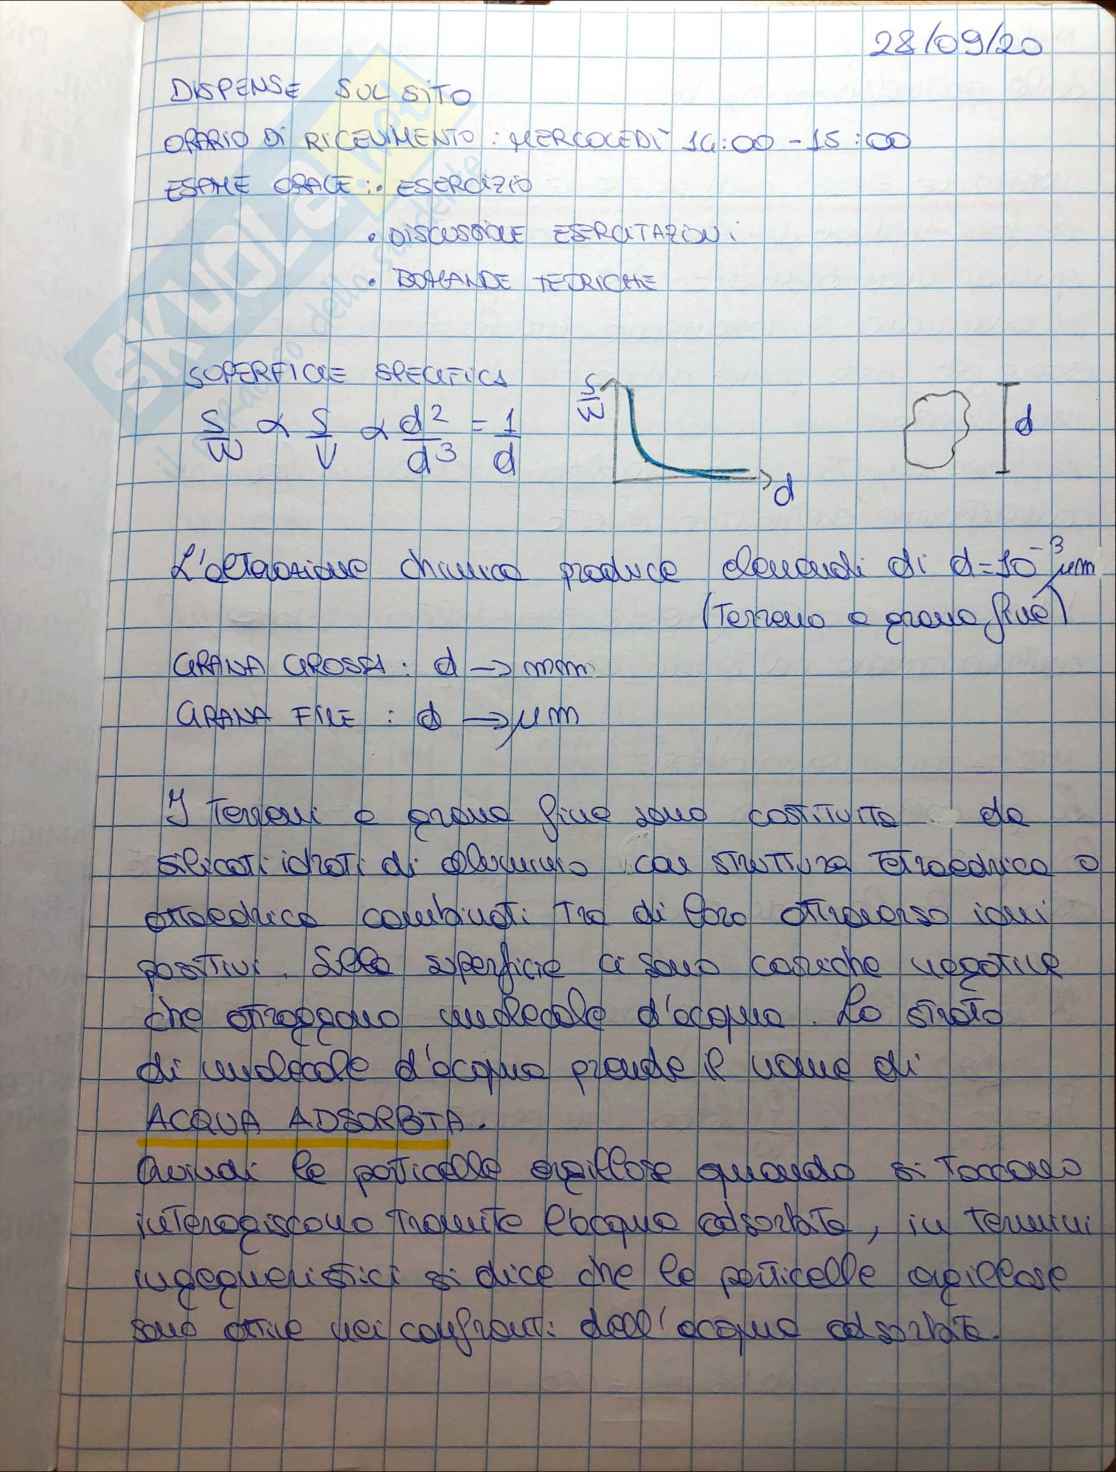 28/09/20
DISPENSE SUL SITO
ORARIO DI RICEVIMENTO : MERCOLEDÌ 14:00 - 15:00
ESAME ORALE : • ESERCIZIO
• DISCUSSIONE ESERCITAZIONI
• DOMANDE TEORICHE
SUPERFICIE SPECIFICA
S/W ∝ S/V ∝ d²/d³ = 1/d
S/W
d
d
L'alterazione chimica produce elementi di d=10⁻³ μm
(Terreno a grana fine)
GRANA GROSSA : d → mm
GRANA FINE : d → μm
I terreni a grana fine sono costituiti da
silicati idrati di alluminio con struttura tetraedrica o
ottaedrica combinati tra di loro attraverso ioni
positivi. Sulla superficie ci sono cariche negative
che attraggono molecole d'acqua. Lo strato
di molecole d'acqua prende il nome di
ACQUA ADSORBITA.
Quindi le particelle argillose quando si toccano
interagiscono tramite l'acqua adsorbita, in termini
ingegneristici si dice che le particelle argillose
sono attive nei confronti dell'acqua adsorbita.
SKUOLA